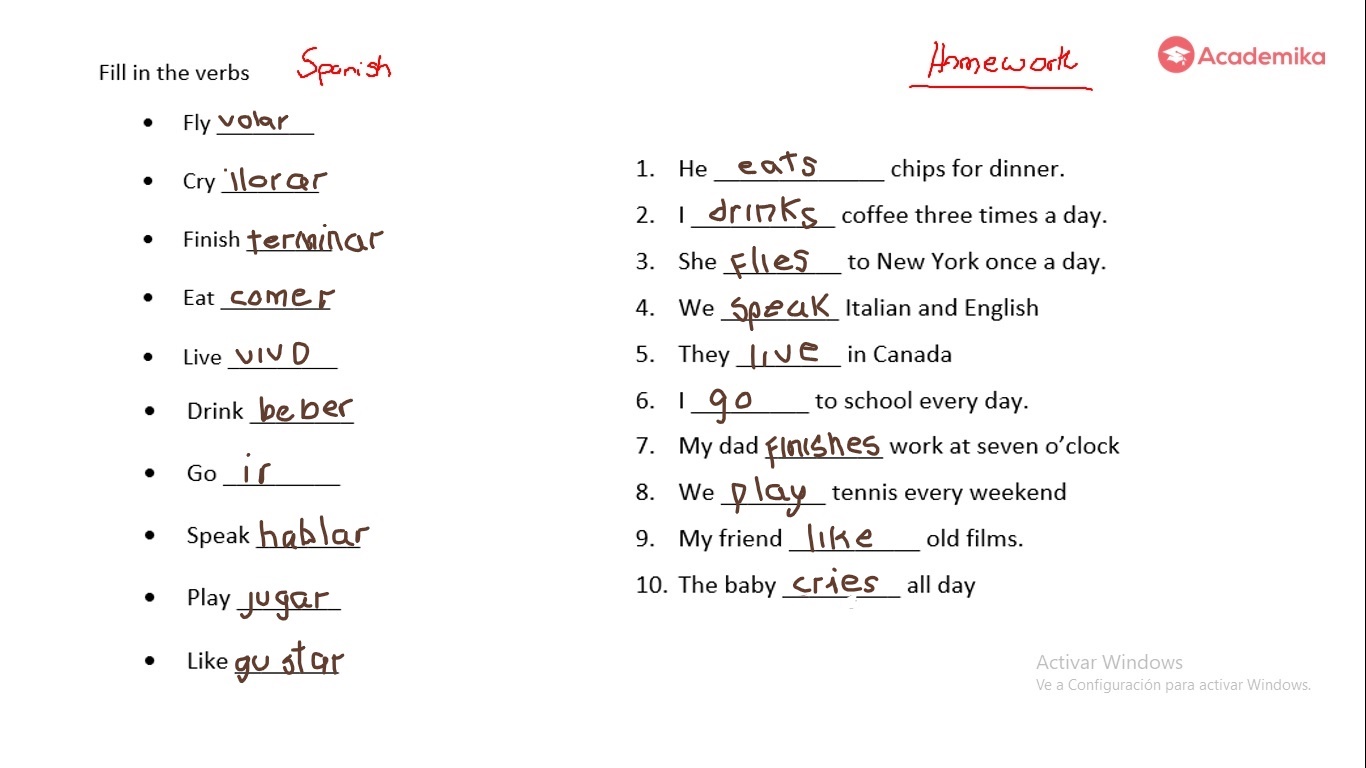 Fill in the verbs Spanish
Fly volar
Cry llorar
Finish terminar
Eat comer
Live vivo
Drink beber
Go ir
Speak hablar
Play jugar
Like gustar
Homework
Academika
1. He eats chips for dinner.
2. I drinks coffee three times a day.
3. She flies to New York once a day.
4. We speak Italian and English
5. They live in Canada
6. I go to school every day.
7. My dad finishes work at seven o’clock
8. We play tennis every weekend
9. My friend like old films.
10. The baby cries all day
Activar Windows
Ve a Configuración para activar Windows.